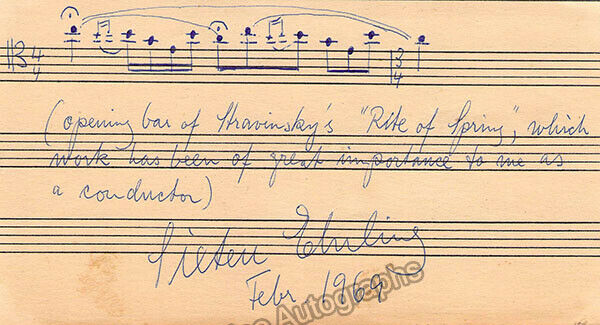 4
4
3
4
(opening bar of Stravinsky's "Rite of Spring", which
work has been of great importance to me as
a conductor)
Sixten Ehrling
Febr. 1969
Autographs